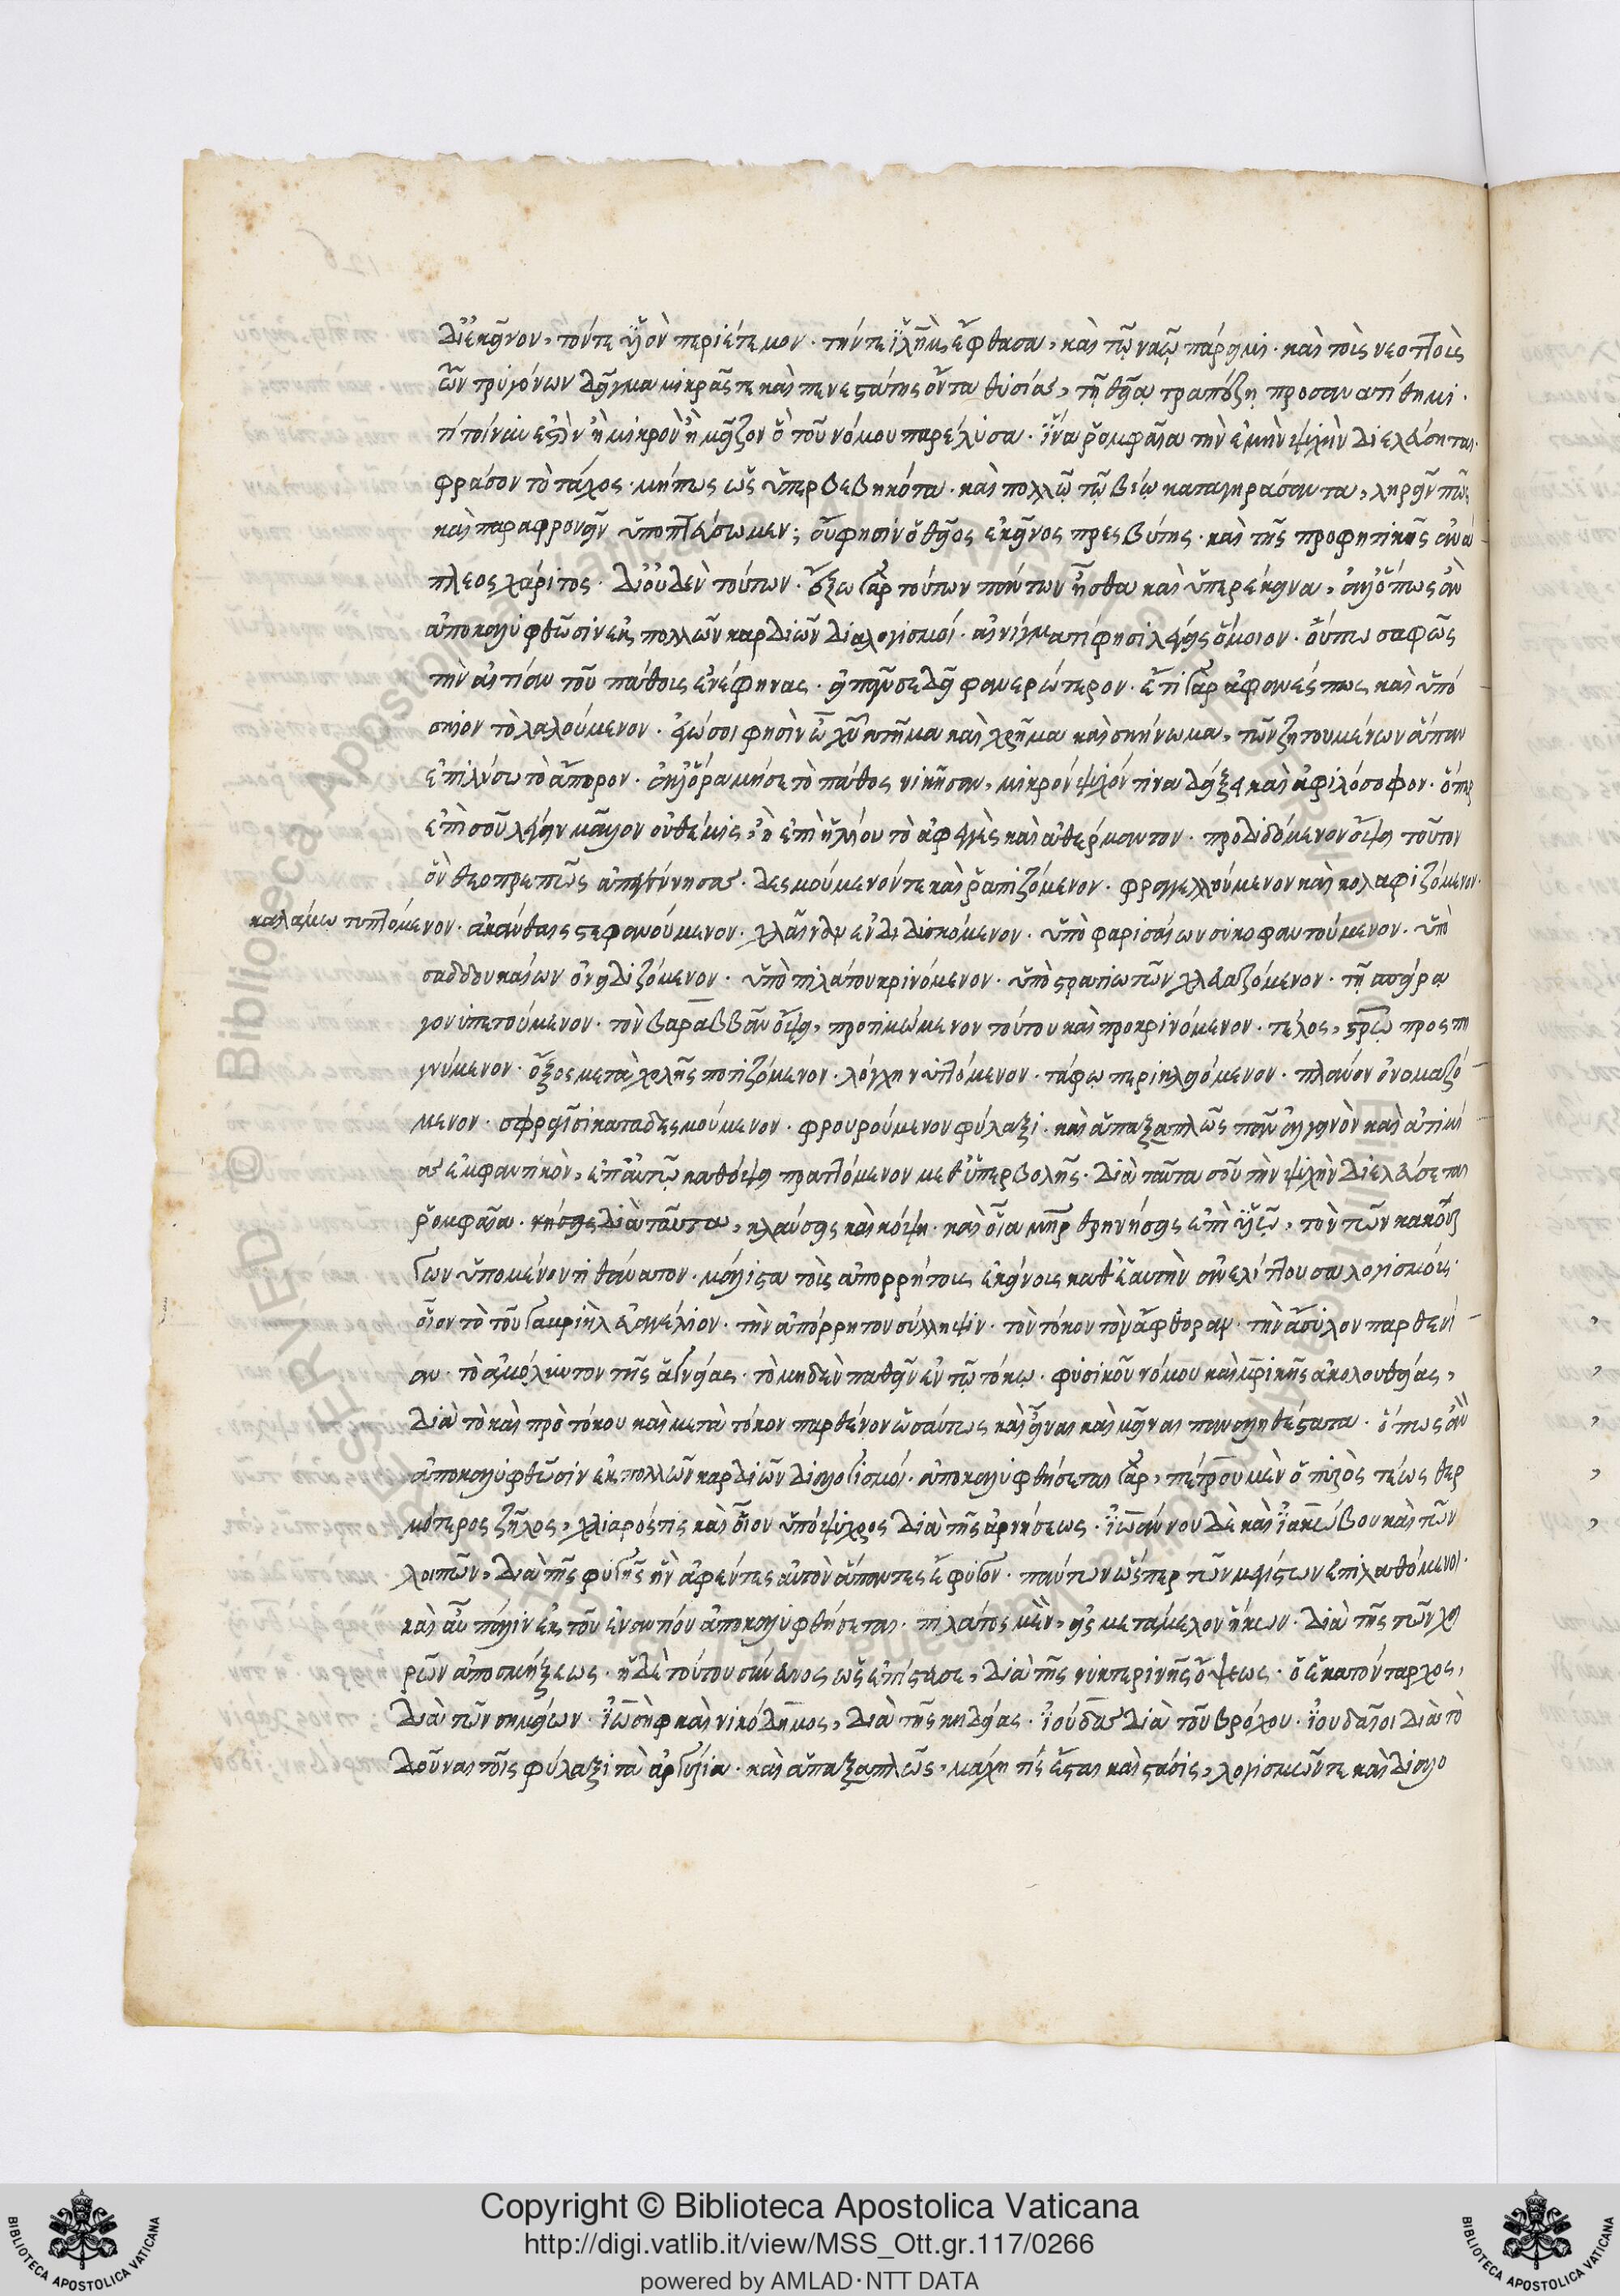 δι' ἐκεῖνον, τόν τε υἱὸν περιέτεμον· τήν τε ἱλὴμ ἔφθασα, καὶ τῷ ναῷ πάρειμι· καὶ τοῖς νεοττοῖς
τῶν τρυγόνων δεῖγμα μικρᾶς τε καὶ πενεστάτης ὄντα θυσίας, τῇ θείᾳ τραπέζῃ προσανατίθημι·
τί τοίνυν ἐστὶν ἢ μικρὸν ἢ μεῖζον ὃ τοῦ νόμου παρέλυσα· ἵνα ῥομφαία τὴν ἐμὴν ψυχὴν διελεύσηται·
φράσον τὸ τάχος· μήπως ὡς ὑπερβεβηκότα· καὶ πολλῷ τῷ βίῳ καταγηράσαντα, ληρεῖν πως
καὶ παραφρονεῖν ὑποπτεύσωμεν; οὔ φησιν ὁ θεῖος ἐκεῖνος πρεσβύτης· καὶ τῆς προφητικῆς ἀνά
πλεος χάριτος· δι' οὐδὲν τούτων· ἔξω γὰρ τούτων πάντων ἦσθα καὶ ὑπερέκεινα, ἀλλ' ὅπως ἂν
ἀποκαλυφθῶσιν ἐκ πολλῶν καρδιῶν διαλογισμοί· αἰνίγματί φησι λέγεις ὅμοιον· οὔπω σαφῶς
τὴν αἰτίαν τοῦ πάθους ἐνέφηνας· εἰπεῖν σε δεῖ φανερώτερον· ἔτι γὰρ ἀφανές πως καὶ ὑπό
σκιον τὸ λαλούμενον· ἐγώ σοι φησὶν ὦ χῦ κτῆμα καὶ χρῆμα καὶ σκήνωμα, τῶν ζητουμένων ἅπαν
ἐπιλύσω τὸ ἄπορον· ἀλλ' ὅρα μή σε τὸ πάθος νικῆσαν, μικρόψυχόν τινα δείξῃ καὶ ἀφιλόσοφον· ὅπερ
ἐπὶ σοῦ λέγειν μᾶλλον οὐ θέμις, ἢ ἐπὶ ἡλίου τὸ ἀφεγγὲς καὶ ἀθέρμαντον· προδιδόμενον ὄψει τοῦτον
ὃν θεοπρεπῶς ἀπεγέννησας· δεσμούμενόν τε καὶ ῥαπιζόμενον· φραγγελλούμενον καὶ κολαφιζόμενον·
καλάμῳ τυπτόμενον· ἀκάνθαις στεφανούμενον· χλαῖναν ἐνδιδυσκόμενον· ὑπὸ φαρισαίων συκοφαντούμενον· ὑπὸ
σαδδουκαίων ὀνειδιζόμενον· ὑπὸ πιλάτου κρινόμενον· ὑπὸ στρατιωτῶν χλευαζόμενον· τῇ σπείρᾳ
γονυπετούμενον· τὸν βαραββᾶν ὄψει, προτιμώμενον τούτου καὶ προκρινόμενον· τέλος, στρῶ προσπη
γνύμενον· ὄξος μετὰ χολῆς ποτιζόμενον· λόγχῃ νυττόμενον· τάφῳ περικλειόμενον· πλάνον ὀνομαζό
μενον· σφραγῖσι καταδεσμούμενον· φρουρούμενον φύλαξι· καὶ ἅπαξ ἁπλῶς πᾶν ἀλγεινὸν καὶ ἀτιμί
ας ἐμφαντικὸν, ἐπ' αὐτῷ κατόψει πραττόμενον μεθ' ὑπερβολῆς· διὰ ταῦτα σοῦ τὴν ψυχὴν διελεύσεται
ῥομφαία· διὰ ταῦτα, κλαύσεις καὶ κόψῃ· καὶ οἷα μὴρ θρηνήσεις ἐπὶ υἱῷ, τὸν τῶν κακούρ
γων ὑπομένοντι θάνατον· μάλιστα τοῖς ἀπορρήτοις ἐκείνοις καθ' ἑαυτὴν ἀνελίττουσα λογισμοῖς·
οἷον τὸ τοῦ γαβριὴλ εὐαγγέλιον· τὴν ἀπόρρητον σύλληψιν· τὸν τόκον τὸν ἄφθορον· τὴν ἄσυλον παρθενί
αν· τὸ ἀμόλυντον τῆς ἁγνείας· τὸ μηδὲν παθεῖν ἐν τῷ τόκῳ· φυσικοῦ νόμου καὶ μρικῆς ἀκολουθείας,
διὰ τὸ καὶ πρὸ τόκου καὶ μετὰ τόκον παρθένον ὡσαύτως καὶ εἶναι καὶ μεῖναι παναληθέστατα· ὅπως ἂν
ἀποκαλυφθῶσιν ἐκ πολλῶν καρδιῶν διαλογισμοί· ἀποκαλυφθήσεται γὰρ, πέτρου μὲν ὁ πιστὸς τέως θερ
μότερος ζῆλος, χλιαρός τις καὶ οἷον ὑπόψυχρος διὰ τῆς ἀρνήσεως· ἰωάννου δὲ καὶ ἰακώβου καὶ τῶν
λοιπῶν, διὰ τῆς φυγῆς ἣν ἀφέντες αὐτὸν ἅπαντες ἔφυγον· πάντων ὥσπερ τῶν μεγίστων ἐπιλαθόμενοι·
καὶ αὖ πάλιν ἐκ τοῦ ἐναντίου ἀποκαλυφθήσεται· πιλάτος μὲν, εἰς μετάμελον ἥκων· διὰ τῆς τῶν χει
ρῶν ἀποσμήξεως· ἡ δὲ τούτου σύνευνος ὡς ἐπίστευσε, διὰ τῆς νυκτερινῆς ὄψεως· ὁ ἑκατόνταρχος,
διὰ τῶν σημείων· ἰωσὴφ καὶ νικόδημος, διὰ τῆς κηδείας· ἰούδας διὰ τοῦ βρόχου· ἰουδαῖοι διὰ τὸ
δοῦναι τοῖς φύλαξι τὰ ἀργύρια· καὶ ἅπαξ ἁπλῶς, μάχη τίς ἔσται καὶ στάσις, λογισμῶν τε καὶ διαλο
Copyright © Biblioteca Apostolica Vaticana
http://digi.vatlib.it/view/MSS_Ott.gr.117/0266
powered by AMLAD·NTT DATA
BIBLIOTECA APOSTOLICA VATICANA
BIBLIOTECA APOSTOLICA VATICANA